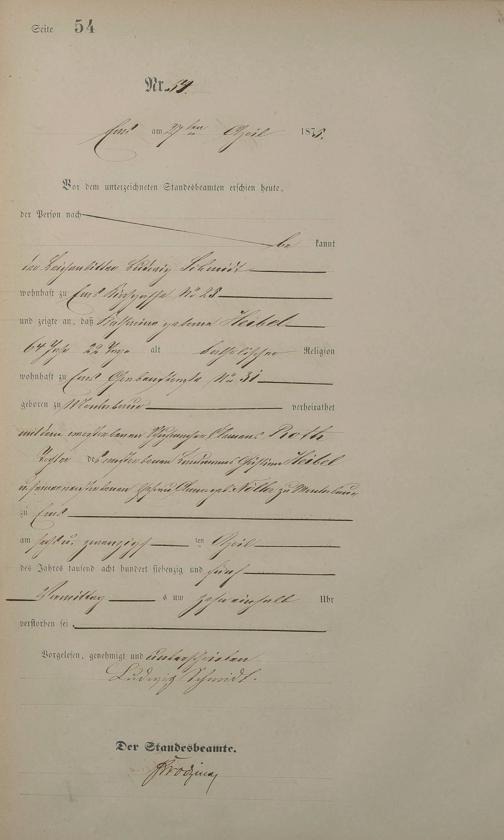 Seite 54
Nr. 54.
Ems am 27ten April 1875.
Vor dem unterzeichneten Standesbeamten erschien heute,
der Person nach
be kannt
der Leichenbitter Ludwig Schmidt
wohnhaft zu Ems Kirchgasse No 28
und zeigte an, daß geborene Heibel
64 Jahr 22 Tage alt katholischer Religion
wohnhaft zu Ems No 31
geboren zu Montabaur verheirathet
mit dem verstorbenen Roth
Tochter des verstorbenen Heibel
zu Montabaur
zu Ems
am sechs u. zwanzigsten ten April
des Jahres tausend acht hundert siebenzig und fünf
Vormittag s um zehn einhalb Uhr
verstorben sei
Vorgelesen, genehmigt und unterschrieben
Ludwig Schmidt.
Der Standesbeamte.